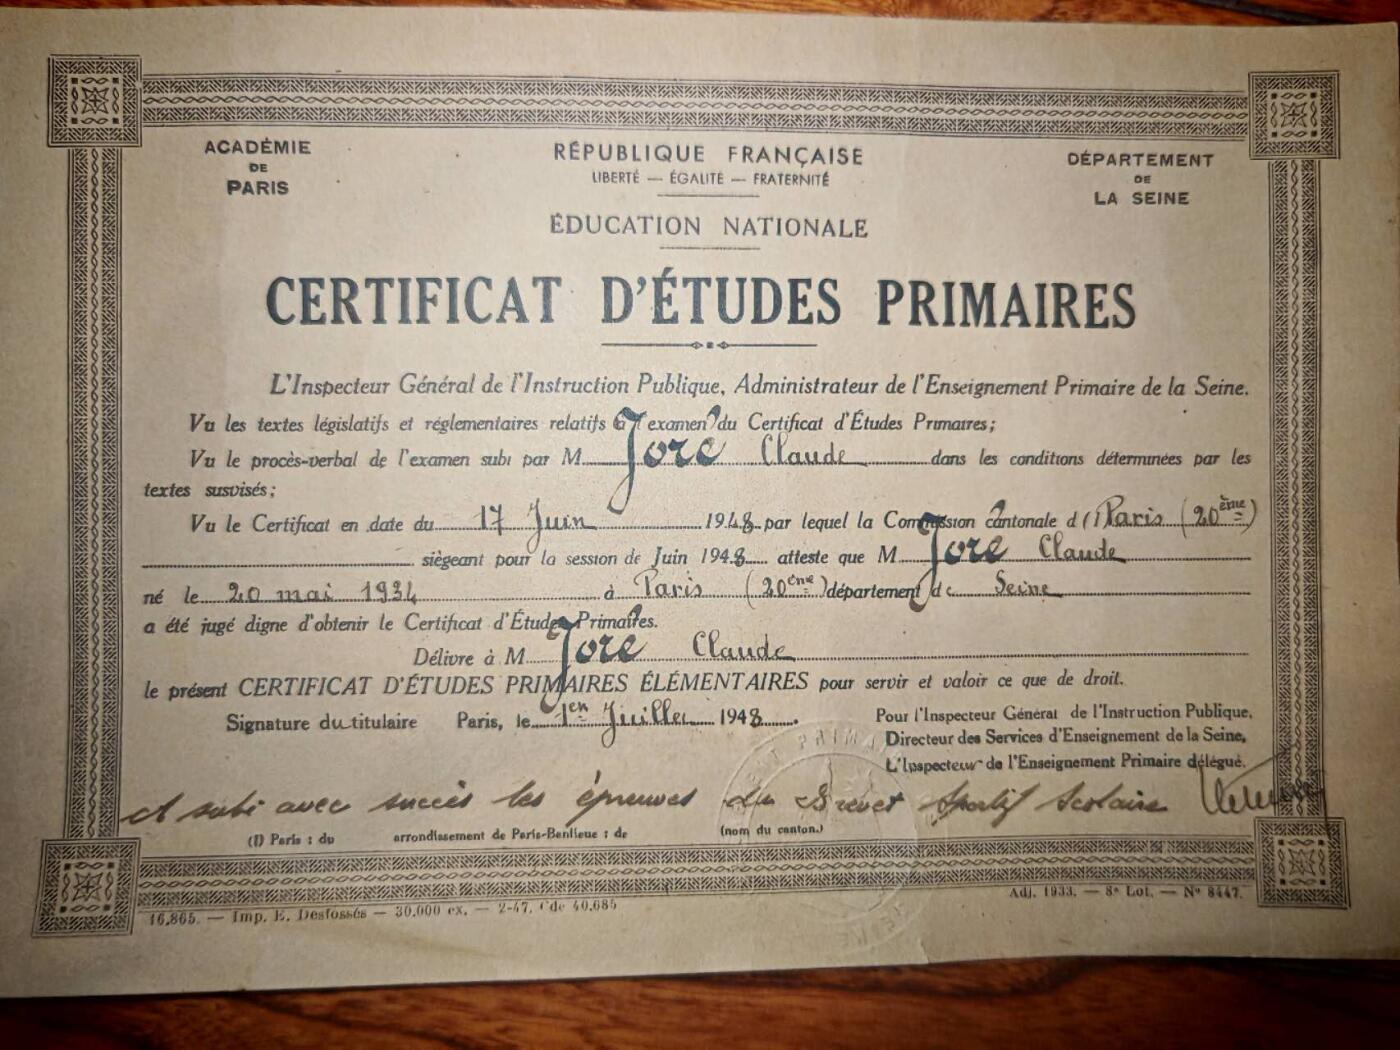 ACADÉMIE
DE
PARIS
RÉPUBLIQUE FRANÇAISE
LIBERTÉ — ÉGALITÉ — FRATERNITÉ
DÉPARTEMENT
DE
LA SEINE
ÉDUCATION NATIONALE
CERTIFICAT D'ÉTUDES PRIMAIRES
L'Inspecteur Général de l'Instruction Publique, Administrateur de l'Enseignement Primaire de la Seine.
Vu les textes législatifs et réglementaires relatifs à l'examen du Certificat d'Études Primaires;
Vu le procès-verbal de l'examen subi par M. Joré Claude dans les conditions déterminées par les
textes susvisés;
Vu le Certificat en date du 17 Juin 1948 par lequel la Commission cantonale d (1) Paris (20ème)
siégeant pour la session de Juin 1948 atteste que M. Joré Claude
né le 20 mai 1934 à Paris (20ème) département de Seine
a été jugé digne d'obtenir le Certificat d'Études Primaires.
Délivré à M. Joré Claude
le présent CERTIFICAT D'ÉTUDES PRIMAIRES ÉLÉMENTAIRES pour servir et valoir ce que de droit.
Signature du titulaire Paris, le 1er Juillet 1948.
Pour l'Inspecteur Général de l'Instruction Publique,
Directeur des Services d'Enseignement de la Seine,
L'Inspecteur de l'Enseignement Primaire délégué.
A subi avec succès les épreuves du Brevet Sportif Scolaire
(1) Paris : du arrondissement de Paris-Banlieue : de (nom du canton.)
16.865. — Imp. E. Desfossés — 30.000 ex. — 2-47. Cde 40.685
Adj. 1933. — 8e Lot. — No 8447.